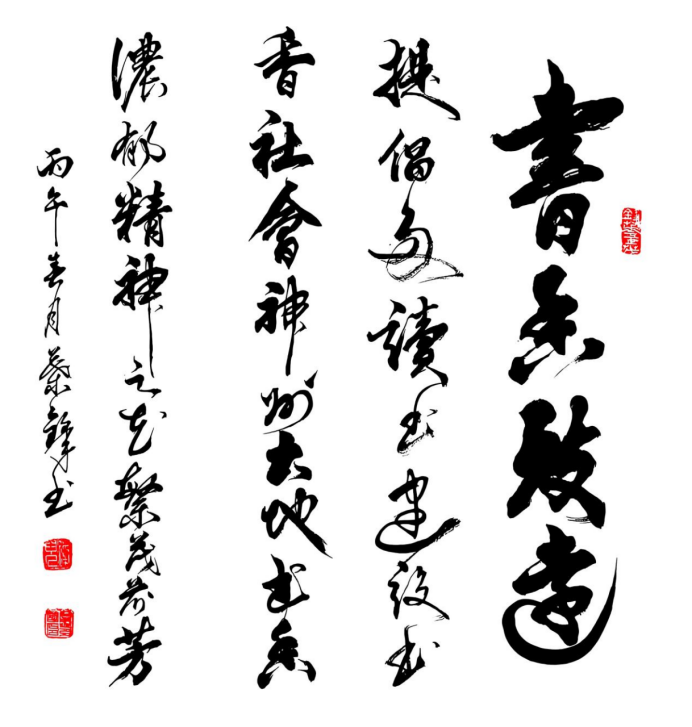 書香致遠
提倡多讀書建設書
香社會神州大地書香
濃郁精神之花繁茂芬芳
丙午春月書